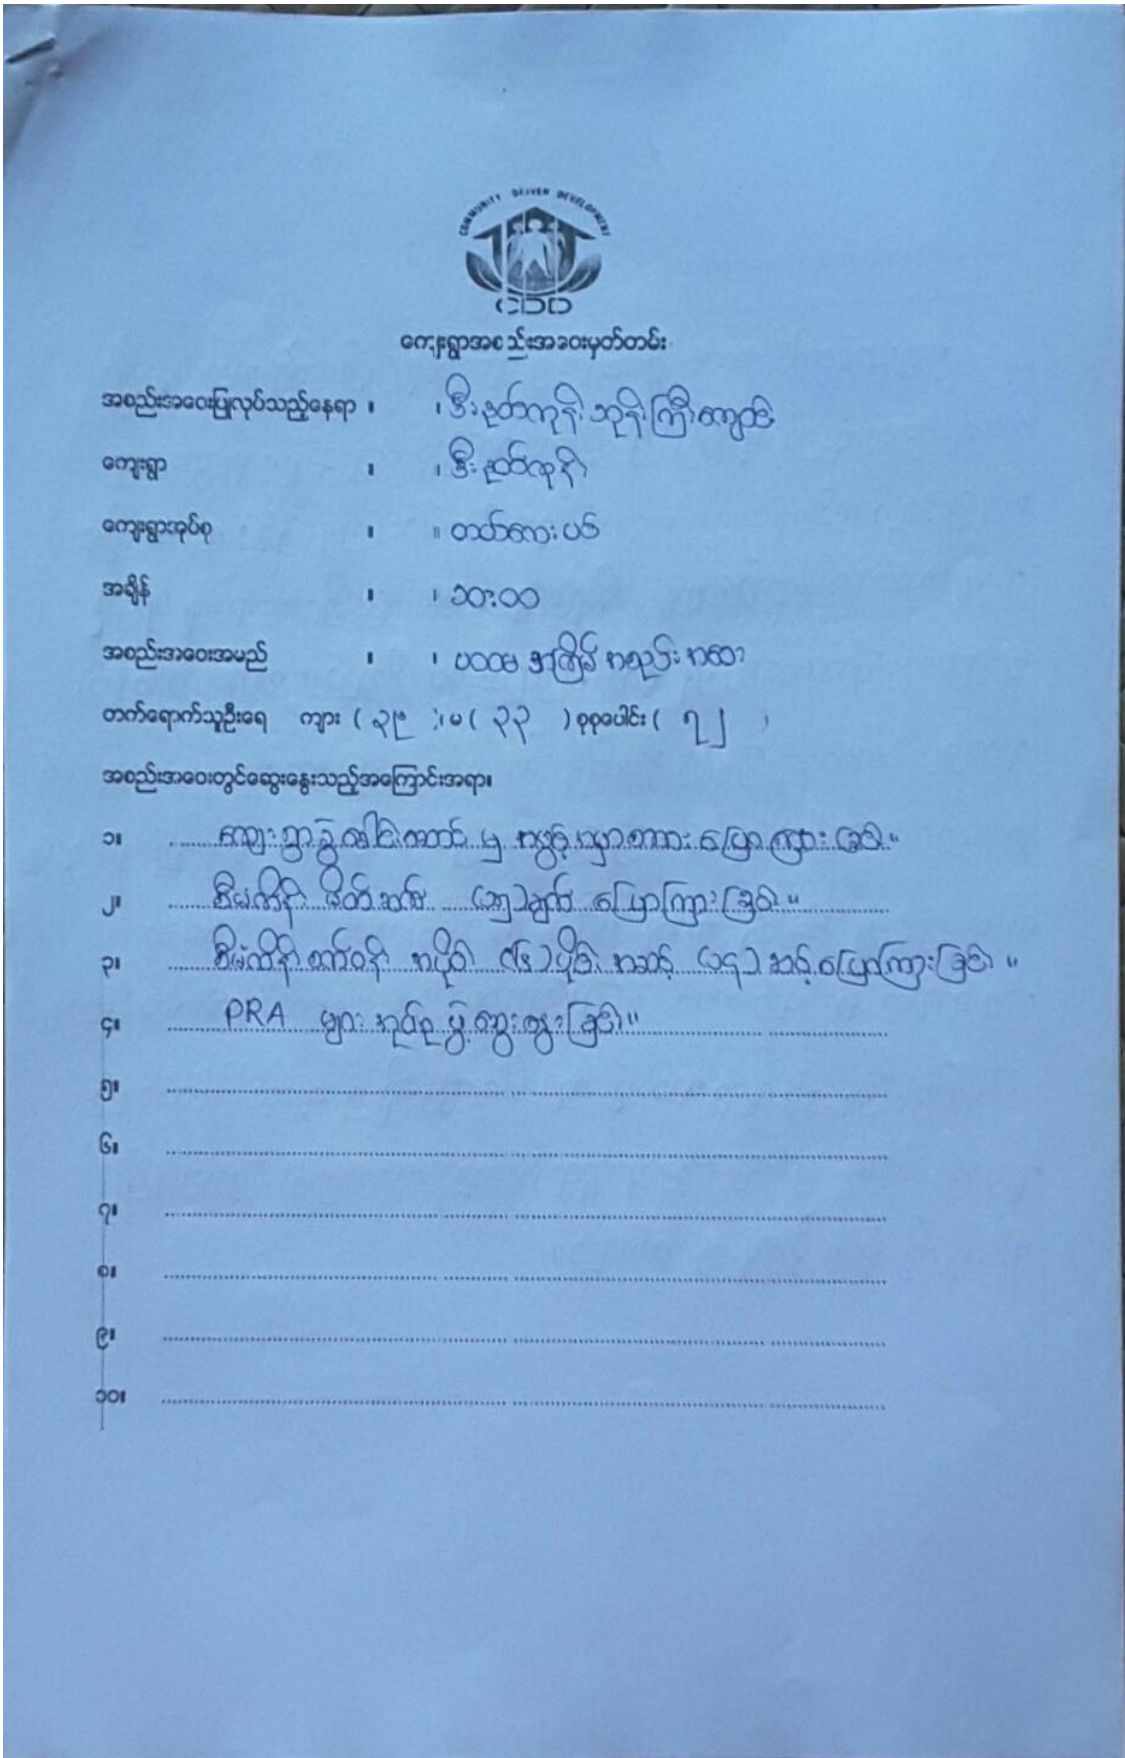 COMMUNITY DRIVEN DEVELOPMENT
CDD
ကျေးရွာအစည်းအဝေးမှတ်တမ်း
အစည်းအဝေးပြုလုပ်သည့်နေရာ ။ ၊ ဒီးဒုတ်ကုန်း ဘုန်းကြီးကျောင်း
ကျေးရွာ ။ ၊ ဒီးဒုတ်ကုန်း
ကျေးရွာအုပ်စု ။ ။
အချိန် ။ ၊ ၁၀:၀၀
အစည်းအဝေးအမည် ။ ၊ ပထမ အကြိမ် အစည်းအဝေး
တက်ရောက်သူဦးရေ ကျား ( ၃၉ ) ၊ မ ( ၃၃ ) စုစုပေါင်း ( ၇၂ )
အစည်းအဝေးတွင်ဆွေးနွေးသည့်အကြောင်းအရာ။
၁။ ကျေးရွာ ခေါင်းဆောင် မှ အဖွင့် အမှာစကား ပြောကြားခြင်း။
၂။ စီမံကိန်း မိတ်ဆက် ချက် ပြောကြားခြင်း။
၃။ စီမံကိန်း စက်ဝန်း အပိုင်း (၄) ပိုင်း အဆင့် (၁၄) ဆင့် ပြောကြားခြင်း။
၄။ PRA များ အုပ်စု ဖွဲ့ ဆွေးနွေးခြင်း။
၅။
၆။
၇။
၈။
၉။
၁၀။